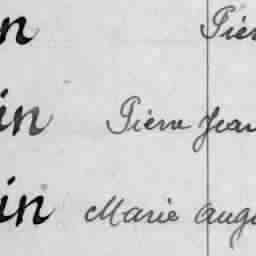 n Pier
in Pierre Jean
in Marie Augu